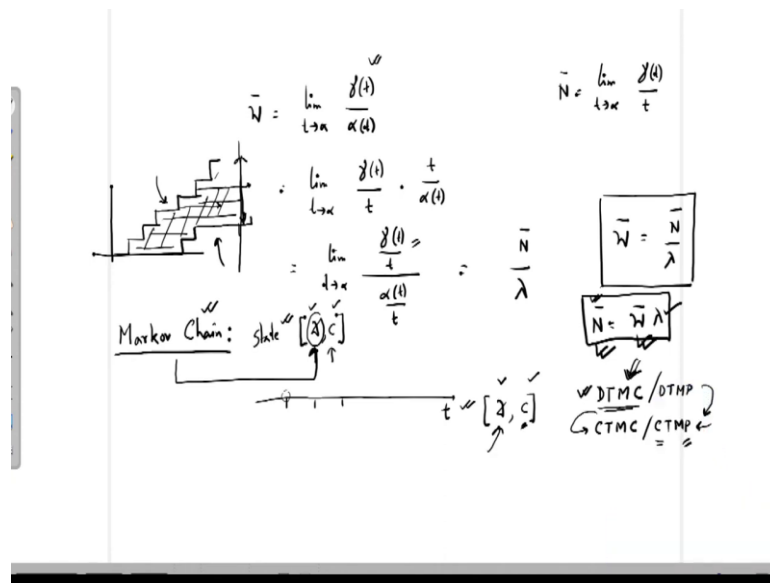 W̄ = lim t→∝ γ(t) / α(t)
N̄ = lim t→∝ γ(t) / t
= lim t→∝ γ(t) / t · t / α(t)
= lim t→∝ (γ(t) / t) / (α(t) / t) = N̄ / λ
W̄ = N̄ / λ
N̄ = W̄ λ
Markov Chain: State [D, C]
t [D, C]
DTMC / DTMP
CTMC / CTMP